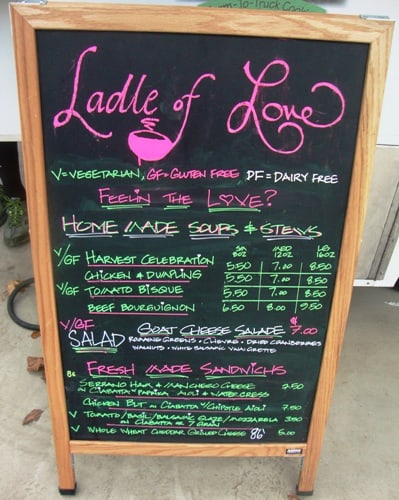 Ladle of Love
V=VEGETARIAN, GF=GLUTEN FREE, DF=DAIRY FREE
FEELIN THE LOVE?
HOME MADE SOUPS & STEWS
SM 8OZ MED 12OZ LG 16OZ
V/GF HARVEST CELEBRATION 5.50 7.00 8.50
CHICKEN & DUMPLING 5.50 7.00 8.50
V/GF TOMATO BISQUE 5.50 7.00 8.50
BEEF BOURGUIGNON 6.50 8.00 9.50
V/GF SALAD GOAT CHEESE SALADE $7.00
ROMAINE GREENS · CHEVRE · DRIED CRANBERRIES
WALNUTS · WHITE BALSAMIC VINAIGRETTE
FRESH MADE SANDWICHS
SERRANO HAM & MANCHEGO CHEESE
ON CIABATTA w/ PAPRIKA AIOLI & WATERCRESS
CHICKEN BLT ON CIABATTA w/ CHIPOTLE AIOLI 7.50
V TOMATO/BASIL/BALSAMIC GLAZE/MOZZARELLA
ON CIABATTA OR 7 GRAIN
V WHOLE WHEAT CHEDDAR GRILLED CHEESE 86' 5.00